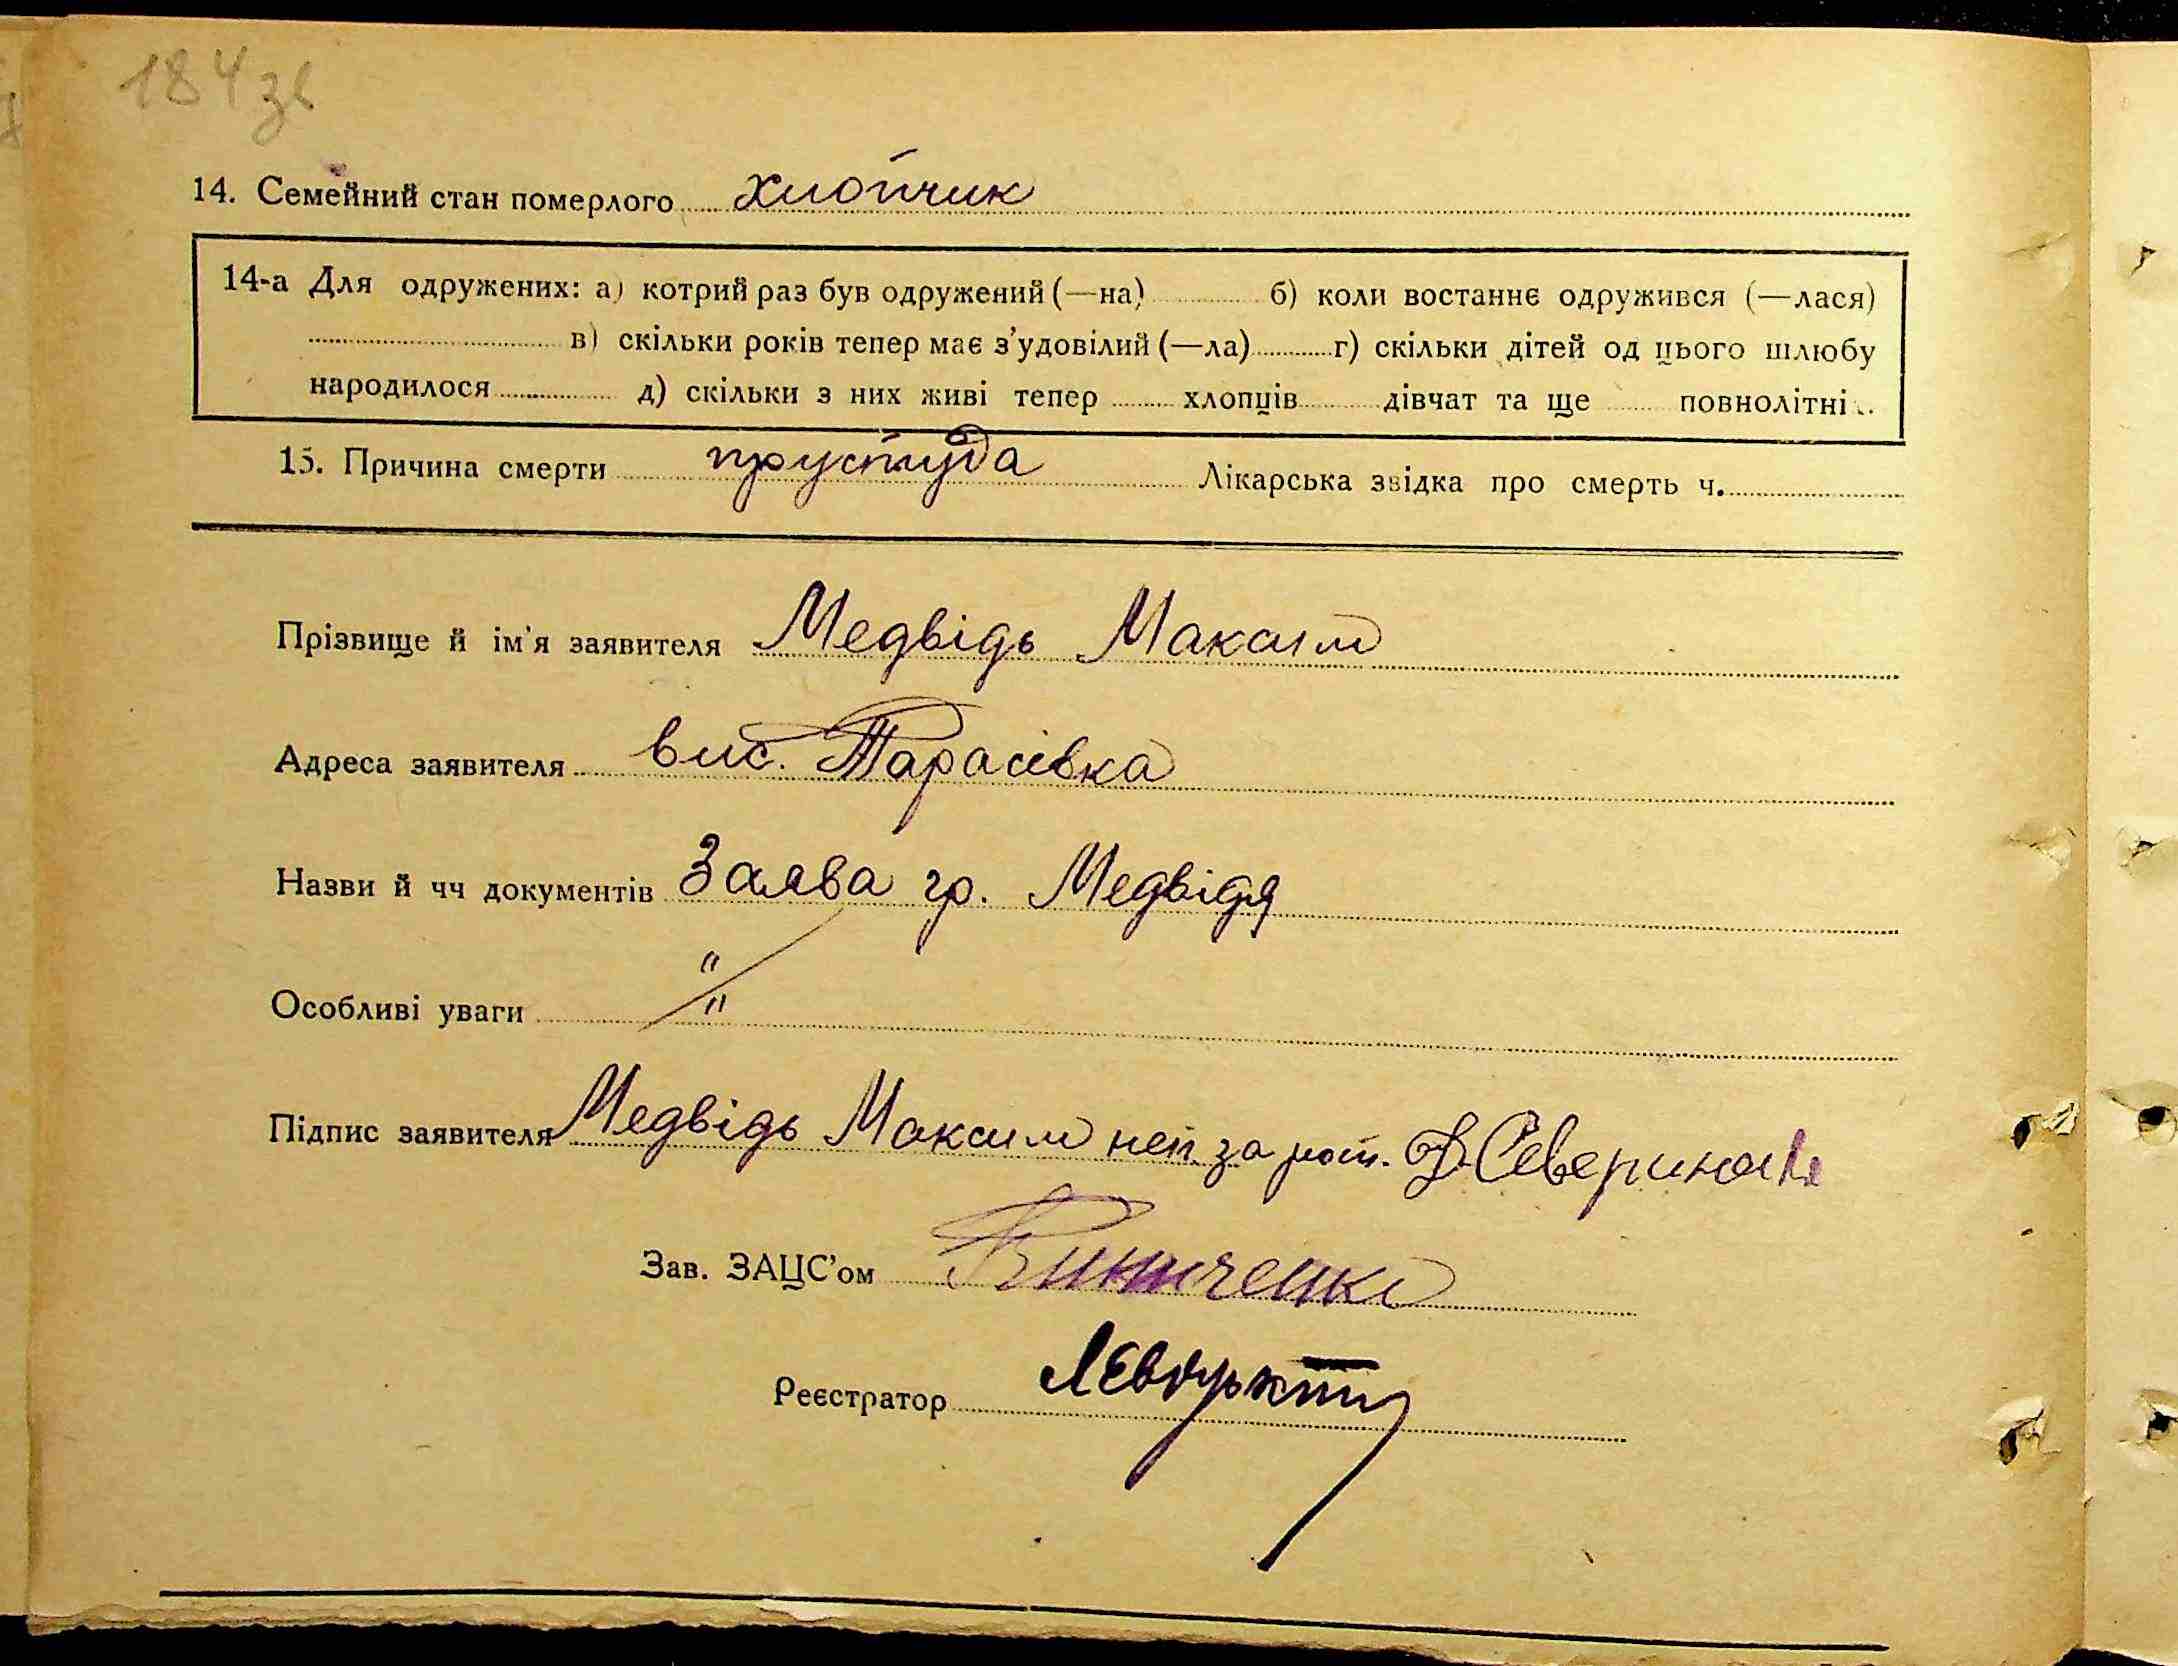 184 зв
14. Семейний стан померлого хлопчик
14-а Для одружених: а) котрий раз був одружений (—на) б) коли востаннє одружився (—лася)
в) скільки років тепер має з’удовілий (—ла) г) скільки дітей од цього шлюбу
народилося д) скільки з них живі тепер хлопців дівчат та ще повнолітні
15. Причина смерти простуда Лікарська звідка про смерть ч.
Прізвище й ім’я заявителя Медвідь Максим
Адреса заявителя вис. Тарасівка
Назви й чч документів Заява гр. Медвідя
Особливі уваги " "
Підпис заявителя Медвідь Максим неп. за
Зав. ЗАЦС’ом
Реєстратор